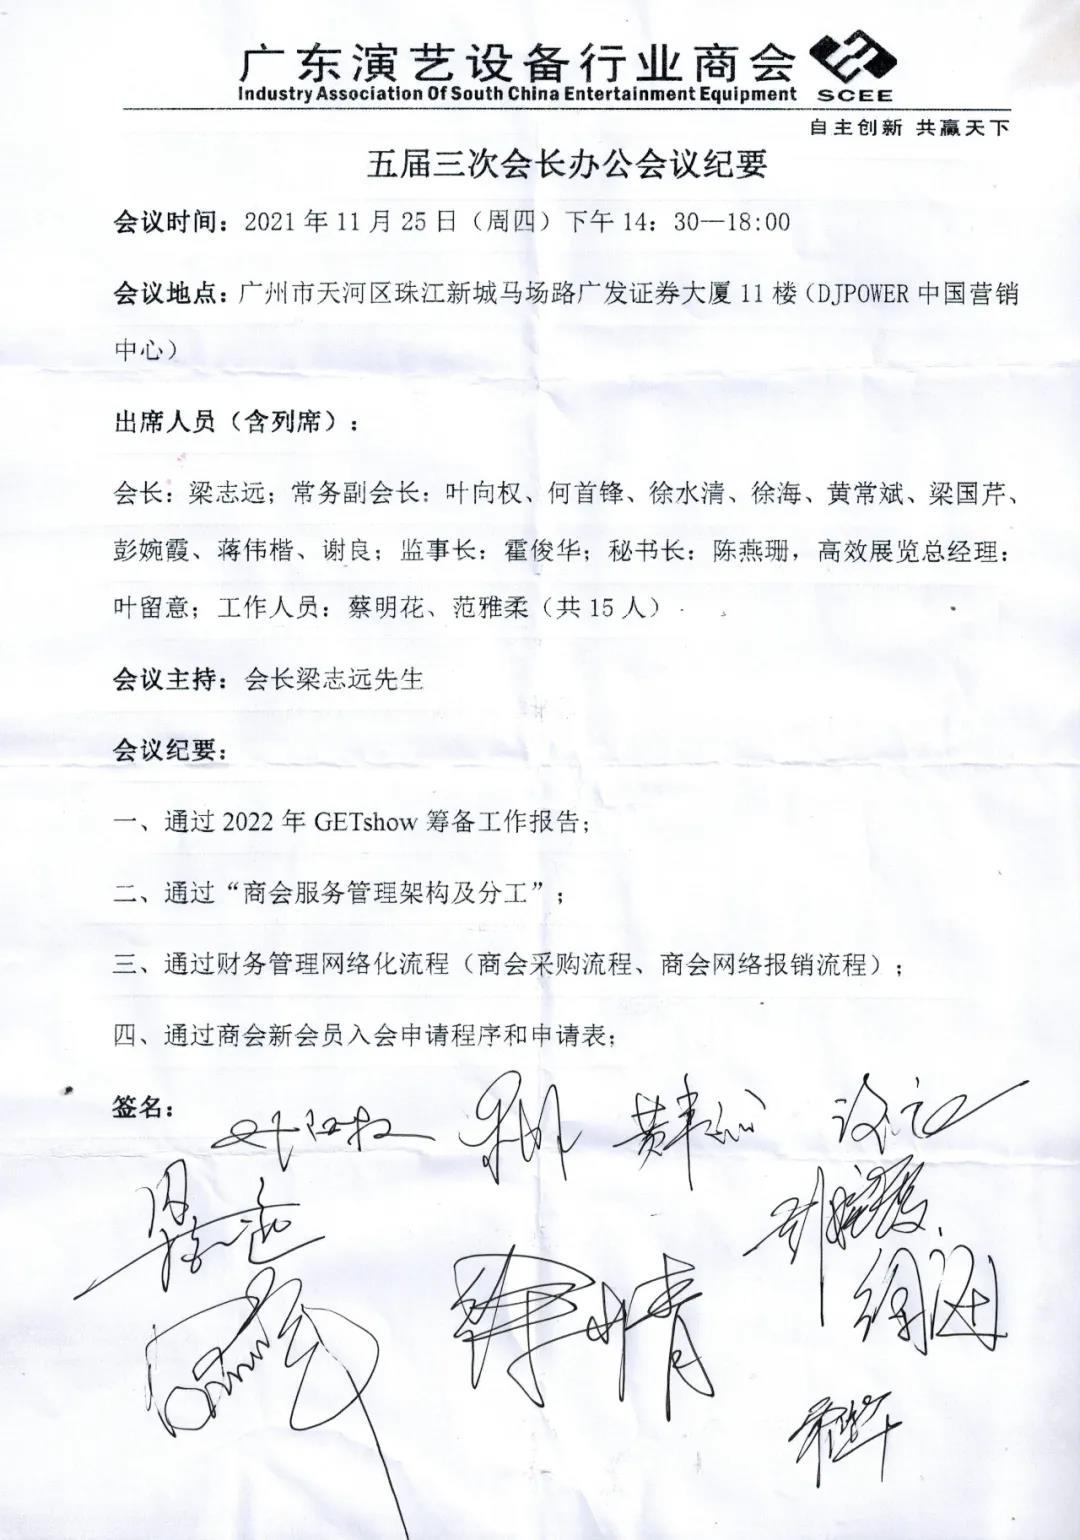 广东演艺设备行业商会
Industry Association Of South China Entertainment Equipment SCEE
自主创新 共赢天下
五届三次会长办公会议纪要
会议时间：2021年11月25日（周四）下午14：30—18:00
会议地点：广州市天河区珠江新城马场路广发证券大厦11楼（DJPOWER中国营销
中心）
出席人员（含列席）：
会长：梁志远；常务副会长：叶向权、何首锋、徐水清、徐海、黄常斌、梁国芹、
彭婉霞、蒋伟楷、谢良；监事长：霍俊华；秘书长：陈燕珊，高效展览总经理：
叶留意；工作人员：蔡明花、范雅柔（共15人）
会议主持：会长梁志远先生
会议纪要：
一、通过2022年GETshow筹备工作报告；
二、通过“商会服务管理架构及分工”；
三、通过财务管理网络化流程（商会采购流程、商会网络报销流程）；
四、通过商会新会员入会申请程序和申请表；
签名：